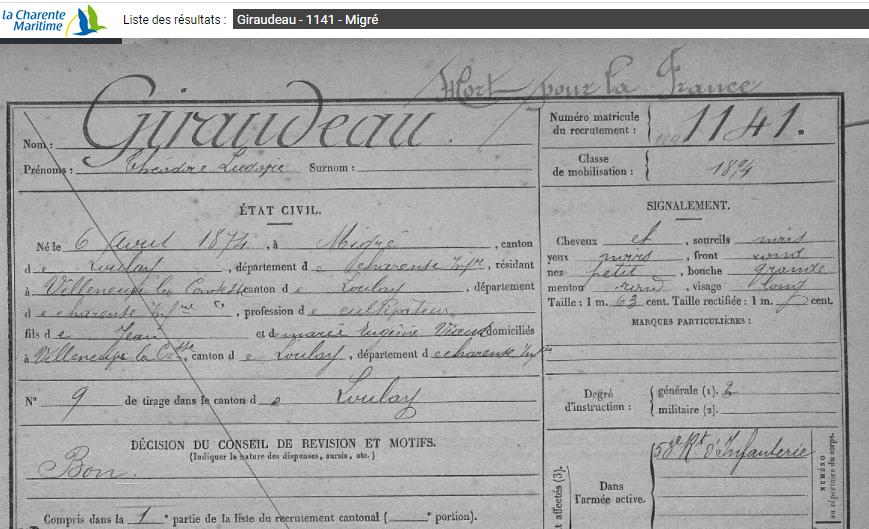 la Charente
Maritime
Liste des résultats : Giraudeau - 1141 - Migré
Mort pour la France
Nom : Giraudeau.
Prénoms : Théodore Ludovic Surnom :
Numéro matricule
du recrutement : 1141.
Classe
de mobilisation : 1894
ÉTAT CIVIL.
Né le 6 Avril 1874, à Migré, canton
de Loulay, département de Charente Infre, résidant
à Villeneuve la Comtesse canton de Loulay, département
de Charente Infre, profession de cultivateur
fils de Jean et de marie Eugénie domiciliés
à Villeneuve la Ctesse, canton de Loulay, département de charente Infre
N° 9 de tirage dans le canton de Loulay
SIGNALEMENT.
Cheveux et, sourcils noirs
yeux noirs, front rond
nez petit, bouche grande
menton rond, visage long
Taille : 1 m. 63 cent. Taille rectifiée : 1 m. cent.
MARQUES PARTICULIÈRES :
Degré
d'instruction :
générale (1). 2
militaire (2).
DÉCISION DU CONSEIL DE REVISION ET MOTIFS.
(Indiquer la nature des dispenses, sursis, etc.)
Bon
Compris dans la 1e partie de la liste du recrutement cantonal ( portion).
affectés (3).
Dans
l'armée active.
Rt d'Infanterie
NUMÉRO
au répertoire du corps.